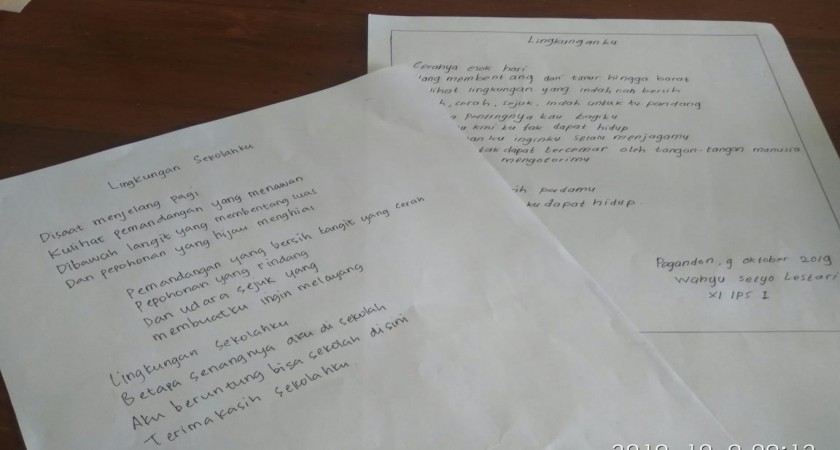 Lingkungan Sekolahku
Disaat menjelang pagi
Kulihat pemandangan yang menawan
Dibawah langit yang membentang luas
Dan pepohonan yang hijau menghias
Pemandangan yang bersih langit yang cerah
Pepohonan yang rindang
Dan udara sejuk yang
membuatku ingin melayang
Lingkungan sekolahku
Betapa senangnya aku di sekolah
Aku beruntung bisa sekolah disini
Terimakasih sekolahku
Lingkunganku
Cerahnya esok hari
yang membentang dari timur hingga barat
lihat lingkungan yang indah nan bersih
h, cerah, sejuk, indah untuk ku pandang
pentingnya kau bagiku
kini ku tak dapat hidup
ku inginku selalu menjagamu
tak dapat tercemar oleh tangan-tangan manusia
mengotorimu
ih padamu
ku dapat hidup.
Pagandon, 9 Oktober 2019
Wahyu Setyo Lestari
XI IPS 1